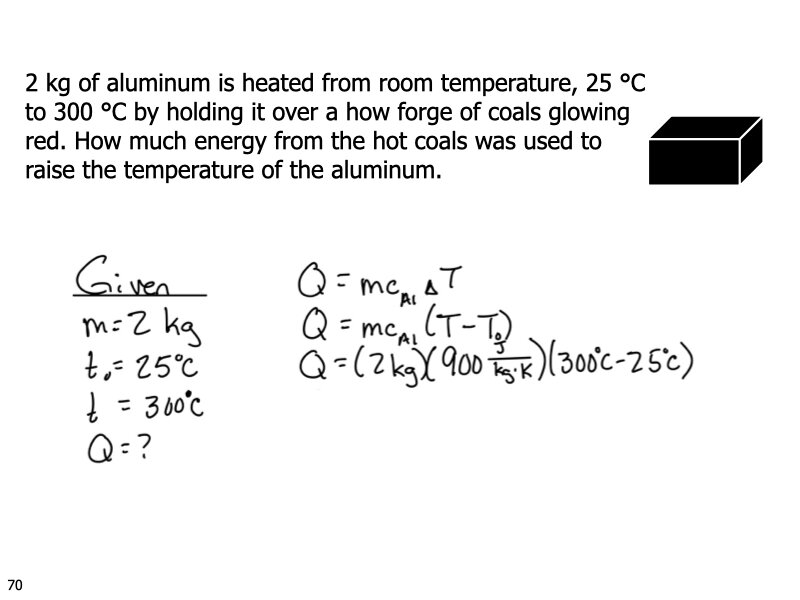 2 kg of aluminum is heated from room temperature, 25 °C
to 300 °C by holding it over a how forge of coals glowing
red. How much energy from the hot coals was used to
raise the temperature of the aluminum.
Given
m=2 kg
t₀=25°C
t =300°C
Q=?
Q=mc_Al ΔT
Q=mc_Al (T-T₀)
Q=(2kg)(900 J/kg·K)(300°C-25°C)
70